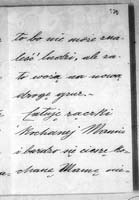 to bo nie może zna-
leść ludzi, ale za
to wożą na nową
drogę
Całuję rączki
kochanej Mamie
i bardzo się cieszę ko-
chaną Mamę